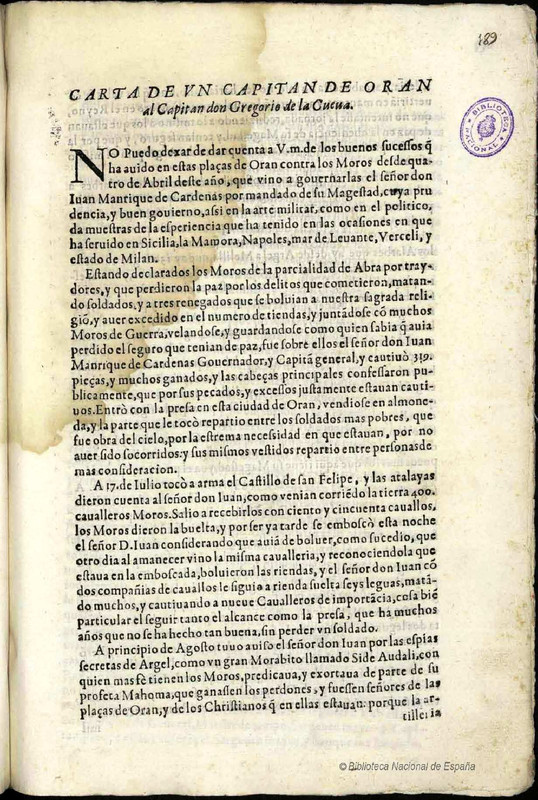 189
CARTA DE VN CAPITAN DE ORAN
al Capitan don Gregorio de la Cueua.
BIBLIOTECA NACIONAL
NO Puedo dexar de dar cuenta a V.m. de los buenos sucessos q̃
ha auido en estas plaças de Oran contra los Moros desde qua-
tro de Abril deste año, que vino a gouernarlas el señor don
Iuan Manrique de Cardenas por mandado de su Magestad, cuya pru
dencia, y buen gouierno, assi en la arte militar, como en el politico,
da muestras de la esperiencia que ha tenido en las ocasiones en que
ha seruido en Sicilia, la Mamora, Napoles, mar de Leuante, Verceli, y
estado de Milan.
Estando declarados los Moros de la parcialidad de Abra por tray-
dores, y que perdieron la paz por los delitos que cometieron, matan-
do soldados, y a tres renegados que se boluian a nuestra sagrada reli-
giõ, y auer excedido en el numero de tiendas, y juntãdose cõ muchos
Moros de Guerra, velandose, y guardandose como quien sabia q̃ auia
perdido el seguro que tenian de paz, fue sobre ellos el señor don Iuan
Manrique de Cardenas Gouernador, y Capitã general, y cautiuò 319.
pieças, y muchos ganados, y las cabeças principales confessaron pu-
blicamente, que por sus pecados, y excessos justamente estauan cauti-
uos. Entrò con la presa en esta ciudad de Oran, vendiose en almone-
da, y la parte que le tocò repartio entre los soldados mas pobres, que
fue obra del cielo, por la estrema necessidad en que estauan, por no
auer sido socorridos, y sus mismos vestidos repartio entre personas de
mas consideracion.
A 17. de Iulio tocò a arma el Castillo de san Felipe, y las atalayas
dieron cuenta al señor don Iuan, como venian corriẽdo la tierra 400.
caualleros Moros. Salio a recebirlos con ciento y cincuenta cauallos,
los Moros dieron la buelta, y por ser ya tarde se emboscò esta noche
el señor D. Iuan considerando que auiã de boluer, como sucedio, que
otro dia al amanecer vino la misma caualleria, y reconociendola que
estaua en la emboscada, boluieron las riendas, y el señor don Iuan cõ
dos compañias de cauallos le siguio a rienda suelta seys leguas, matã-
do muchos, y cautiuando a nueue Caualleros de importãcia, cosa biẽ
particular el seguir tanto el alcance como la presa, que ha muchos
años que no se ha hecho tan buena, sin perder vn soldado.
A principio de Agosto tuuo auiso el señor don Iuan por las espias
secretas de Argel, como vn gran Morabito llamado Side Audali, con
quien mas fè tienen los Moros, predicaua, y exortaua de parte de su
profeta Mahoma, que ganassen los perdones, y fuessen señores de las
plaças de Oran, y de los Christianos q̃ en ellas estauan: porque la ar-
tilleria
© Biblioteca Nacional de España